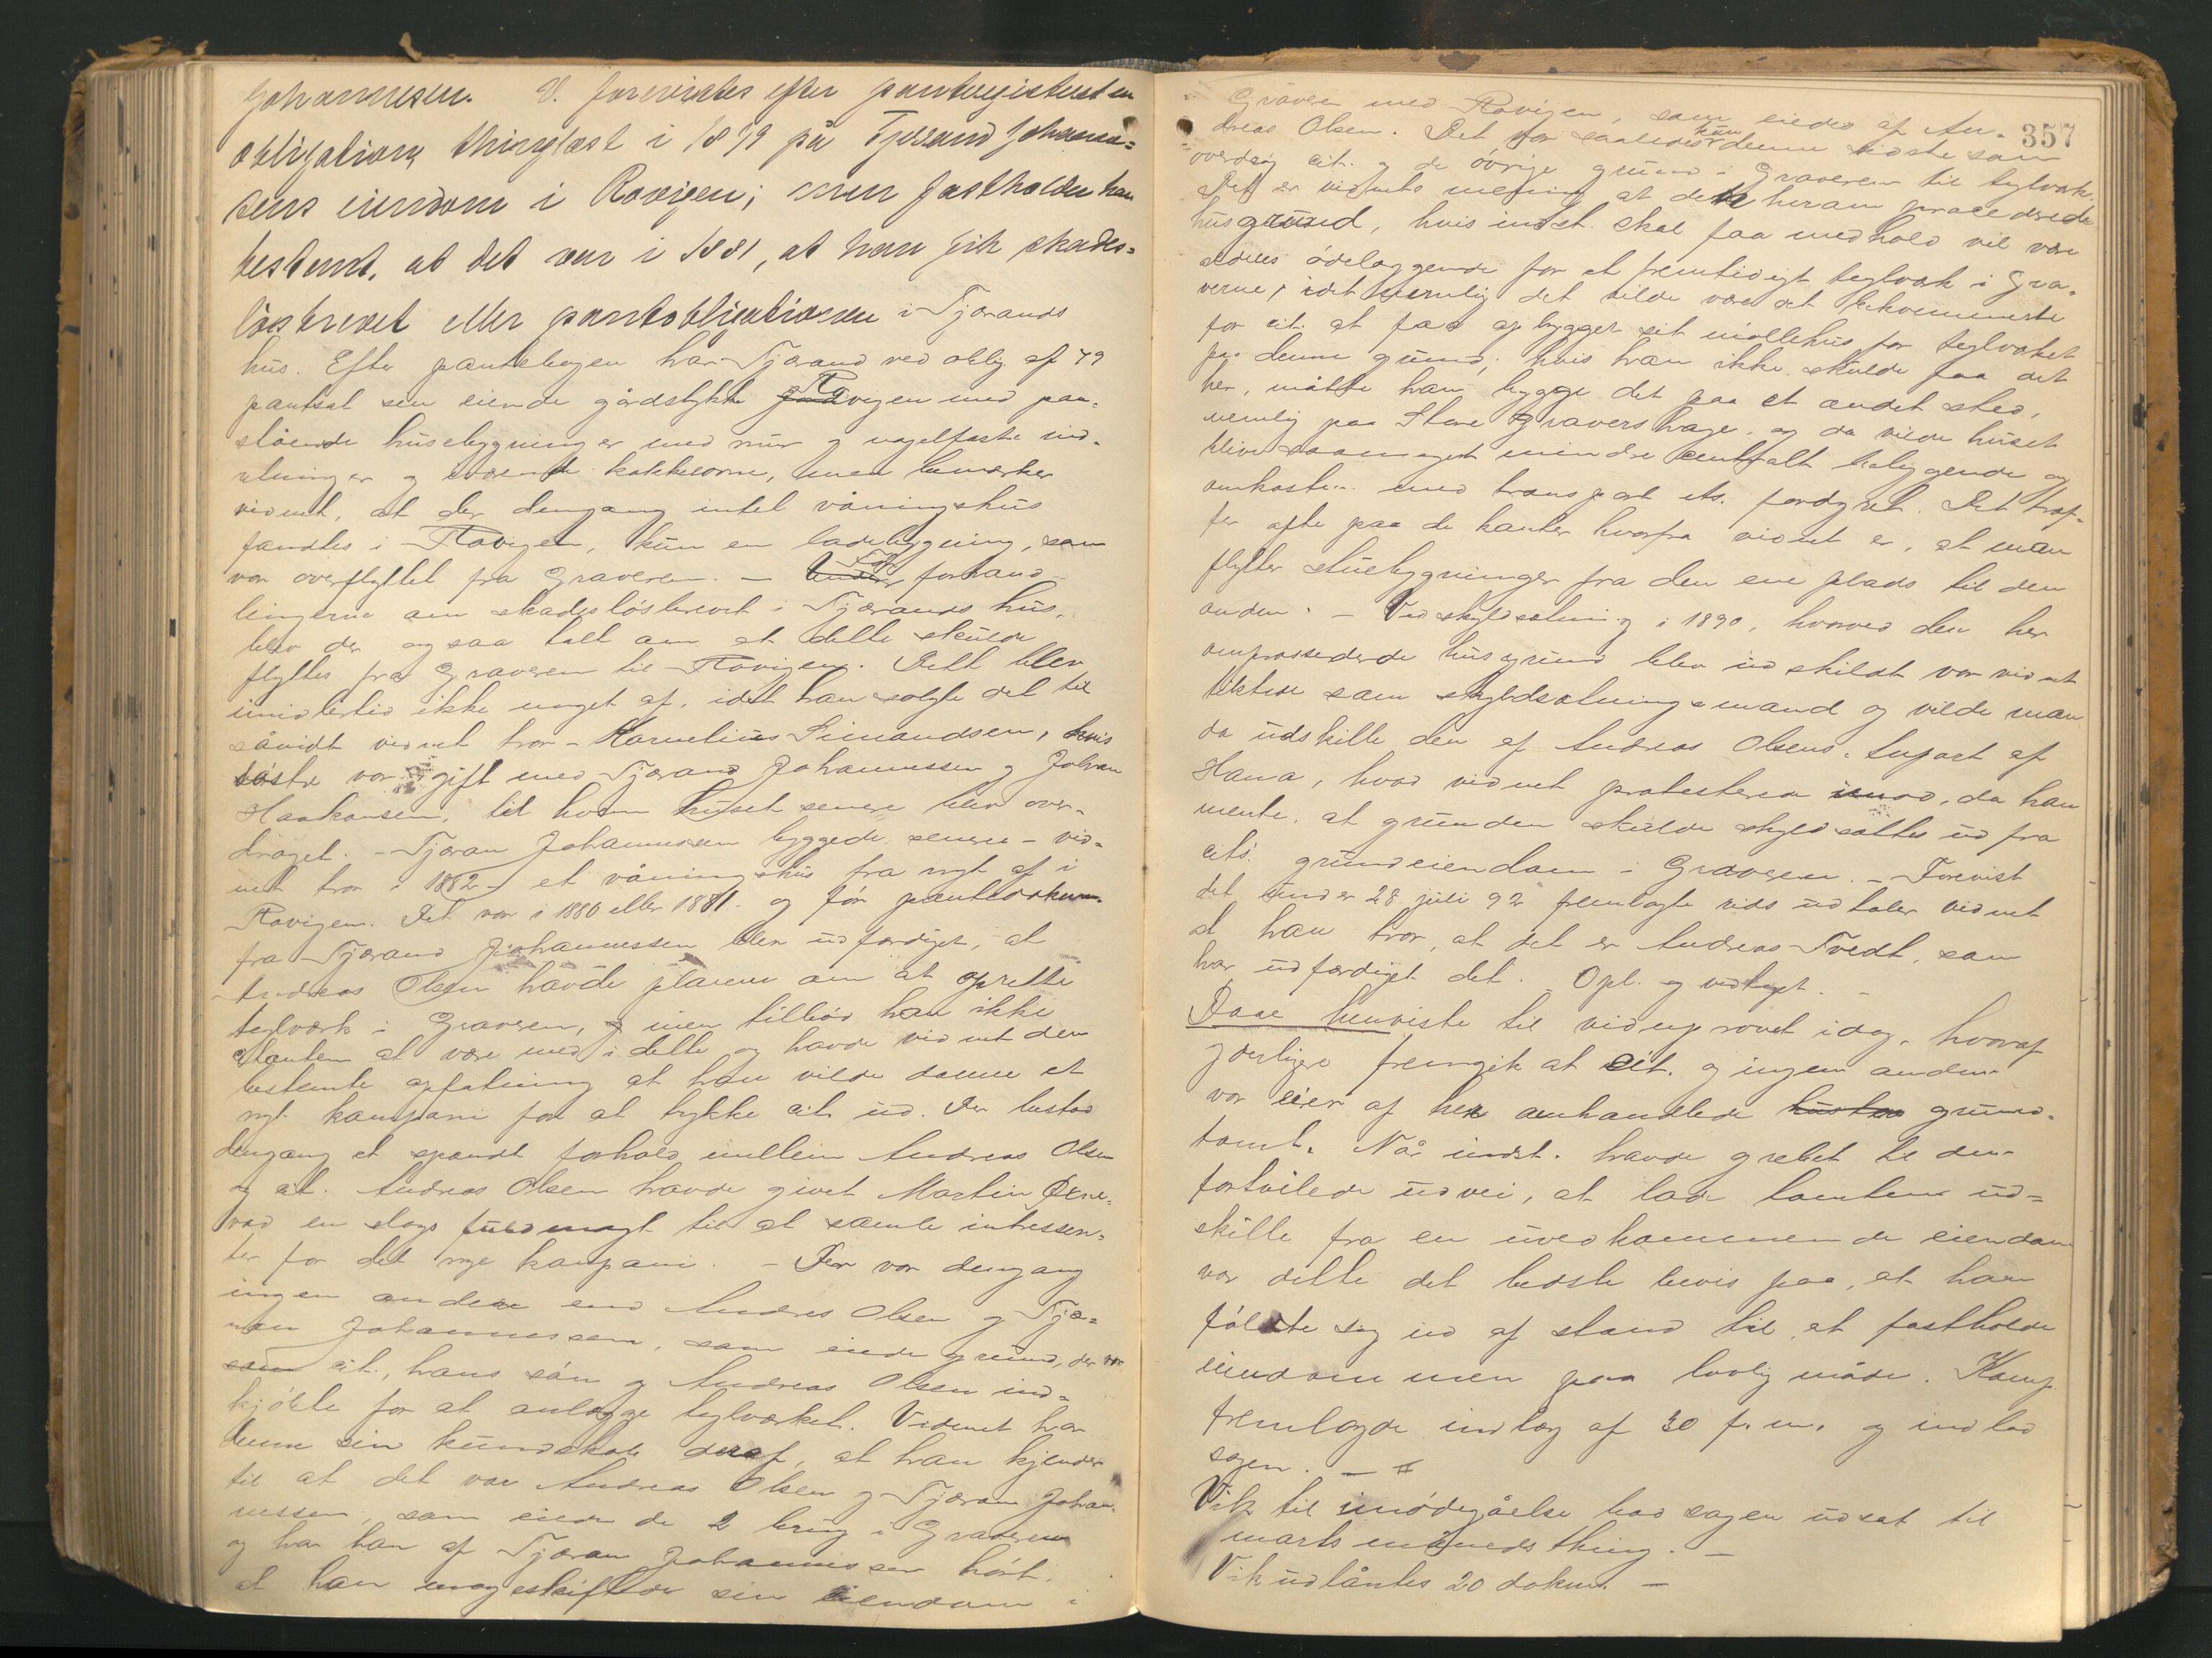 Johannesen. V. forevistes efter panteregisteret en
obligation, thinglæst i 1879 på Tjerand Johanne-
sens eiendom i Rovigen; men fastholder han
bestemt, at det var i 1881, at han fik skades-
løsbrevet eller pantobligationen i Tjærands
hus. Efter pantebogen har Tjærand ved oblig. af 79
pantsat sin eiende gårdstykke Rovigen med paa-
stående husebygninger med mur og nagelfaste ind-
retninger og kakkelovne, men bemærker
vidnet, at der dengang intet våningshus
fandtes i Rovigen, kun en ladebygning, som
var overflyttet fra Graveren. — Før forhand-
lingerne om skadesløsbrevet i Tjærands hus,
blev der ogsaa talt om at dette skulde
flyttes fra Graveren til Rovigen. Dett blev
imidlertid ikke noget af, idet han solgte det til
såvidt vidnet tror - Kornelius Simondsen, hvis
søster var gift med Tjærand Johannessen og Johan
Haakonsen, til hvem huset senere blev over-
draget. - Tjæran Johannessen byggede senere - vid-
net tror i 1882 - et våningshus fra nyt af i
Rovigen. Det var i 1880 eller 1881 - og før pantedokum.
fra Tjærand Johannessen blev udfærdiget, at
Andreas Olsen havde planer om at oprette
teglværk i Graveren, men tilbød han ikke
citanten at være med i dette og havde vidnet den
bestemte opfatning at han vilde danne et
nyt kompani for at trykke cit. ud. Der bestod
dengang et spændt forhold mellem Andreas Olsen
og cit. Andreas Olsen havde givet Martin
en slags fuldmagt til at samle intressen-
ter for det nye kompani. - Der var dengang
ingen andere end Andreas Olsen og Tjæ-
ran Johannessen, som eiede grund, der var
som cit., hans søn og Andreas Olsen ind-
kjøbte for at anlægge teglværket. Vidnet har
denne sin kundskab deraf, at han kjender
til at det var Andreas Olsen og Tjæran Johan-
nessen, som eiede de 2 brug i Graveren
og har han af Tjæran Johannessen hørt,
at han mageskiftede sin eiendom i
357
Graveren med Rovigen, som eiedes af An-
dreas Olsen. Det var saaledes kun denne sidste som
overdrog cit. og de øvrige grund i Graveren til teglværk.
Det er vidnets mening at den heromprocederede
husgrund, hvis indst. skal faa medhold vil være
ødelæggende for et fremtidigt teglværk i Gra-
veren, idet nemlig det vilde være det bekvemmeste
for cit. at faa opbygget sit møllehus for teglværket
paa denne grund; hvis han ikke skulde faa det
her, måtte han bygge det paa et andet sted,
nemlig paa Store Gravers hage, og da vilde huset
blive saameget mindre centralt beliggende og
omkostn. med transport etc. fordyret. Det træf-
fer ofte paa de kanter hvorfra vidnet er, at man
flytter stuebygninger fra den ene plads til den
anden. — Ved skyldsætning i 1890, hvorved den her
omprossederede husgrund blev udskildt var vidnet
tilstede som skyldsætningsmand og vilde man
da udskille den af Andreas Olsens part af
Hana, hvad vidnet protesterede imod, da han
mente, at grunden skulde skyldsættes ud fra
cits. grundeiendom i Graveren. — Forevist
det under 28 juli 92 fremlagte rids udtaler vidnet
at han tror, at det er Andreas Tvedt, som
har udfærdiget det. Opl. og vedtaget. —
Daae henviste til vidneprovet idag, hvoraf
ydeligere fremgik at cit. og ingen anden
var eier af her omhandlede hustom grund-
tomt. Når indst. havde grebet til den
fortvilede udvei, at lade tomten ud-
skille fra en uvedkommende eiendom
var dette det bedste bevis paa, at han
følte sig ud af stand til at fastholde
eiendommen paa lovlig måde. Komp.
fremlagde indlæg af 30 f. m. og indlod
sagen. —
Vik til imødegåelse bad sagen udsat til
marts månedsthing. —
Vik udlåntes 20 dokum. —